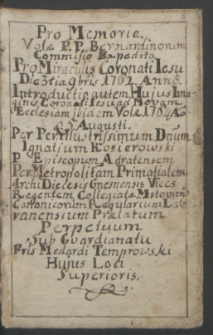 Pro Memoria
Volæ P.P. Bernardinorum
Commissio Expedita
Pro Miraculis Coronati Iesu
Die 3tia 9bris 1702. Anno.
Introductio autem Hujus Ima
ginis Coronati Iesu ad Novam
Ecclesiam ibidem Volæ 1704 A
5 Augusti.
Per Perillustrissimum Dnum
Ignatium Kosierowski
Episcopum Adratensem
Per Metropolitam Primatialem
Archi Diecesis Gnesnensis Vices
Regentem Collegiatæ
Canonicorum Regularium La
ranensium Prælatum
Perpetuum
Sub Guardianatu
Fris Medardi
Hujus Loci
Superioris.